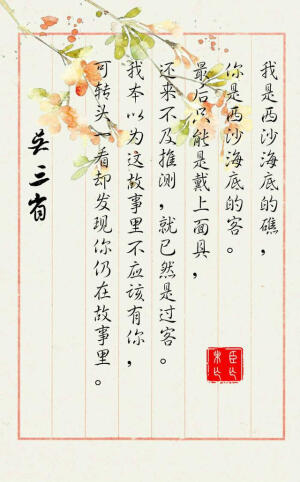 我是西沙海底的礁，
你是西沙海底的客。
最后只能是戴上面具，
还来不及推测，就已然是过客。
我本以为这故事里不应该有你，
可转头一看却发现你仍在故事里。
吴三省